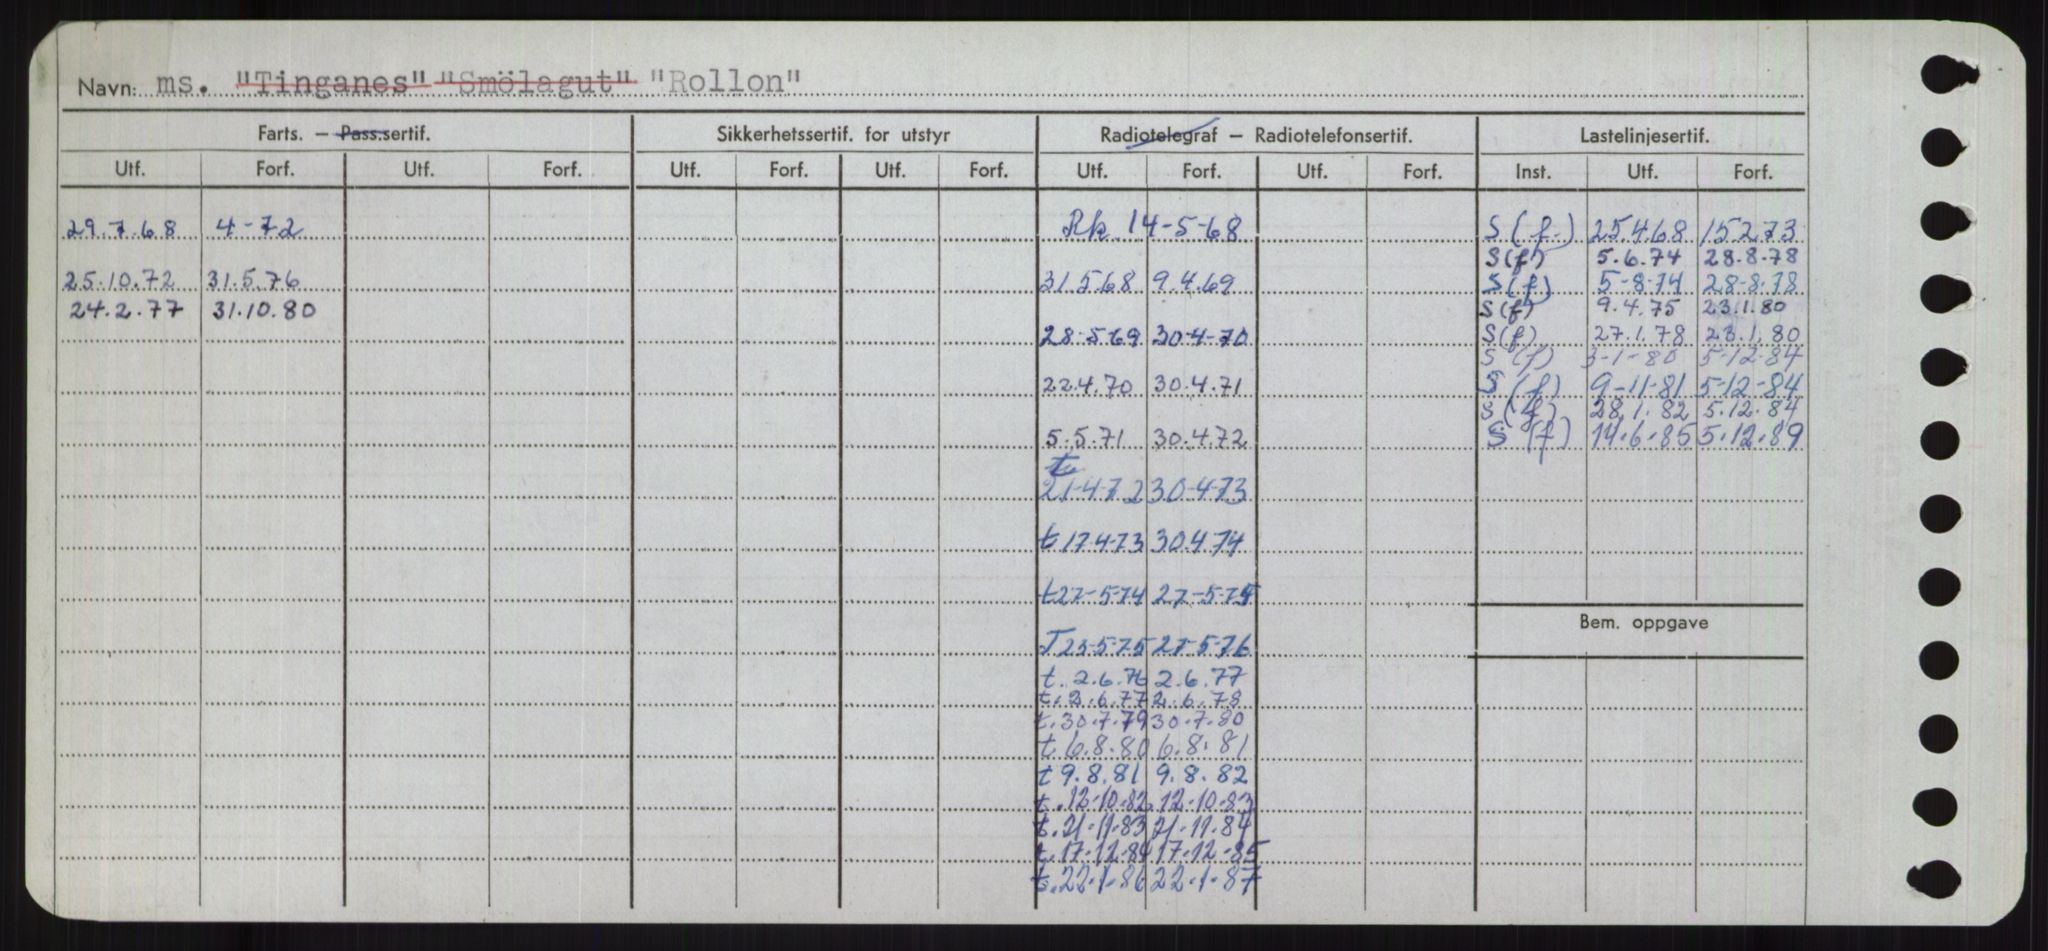 Navn: ms. "Tinganes" "Smölagut" "Rollon"
Farts. — Pass.sertif. Sikkerhetssertif. for utstyr Radiotelegraf — Radiotelefonsertif. Lastelinjesertif.
Utf. Forf. Utf. Forf. Utf. Forf. Utf. Forf. Utf. Forf. Utf. Forf. Inst. Utf. Forf.
29.7.68 4-72 Rk. 14-5-68 S(f.) 25.4.68 15.2.73
S(f) 5.6.74 28.8.78
25.10.72 31.5.76 31.5.68 9.4.69 S(f) 5-8-74 28-8-78
24.2.77 31.10.80 S(f) 9.4.75 23.1.80
28.5.69 30-4-70 S(f) 27.1.78 23.1.80
S(f) 3-1-80 5-12-84
22.4.70 30.4.71 S(f) 9-11-81 5-12-84
S(f) 28.1.82 5.12.84
5.5.71 30.4.72 S(f) 14.6.85 5.12.89
t
21-4-72 30-4-73
t 17-4-73 30.4.74
t 27-5-74 27-5-75
Bem. oppgave
T 23-5-75 27-5-76
t. 2.6.76 2.6.77
t. 2.6.77 2.6.78
t. 30.7.79 30.7.80
t. 6.8.80 6.8.81
t 9.8.81 9.8.82
t. 12-10-82 12-10-83
t. 21-11-83 21-11-84
t. 17-12-84 17-12-85
t. 22-1-86 22-1-87